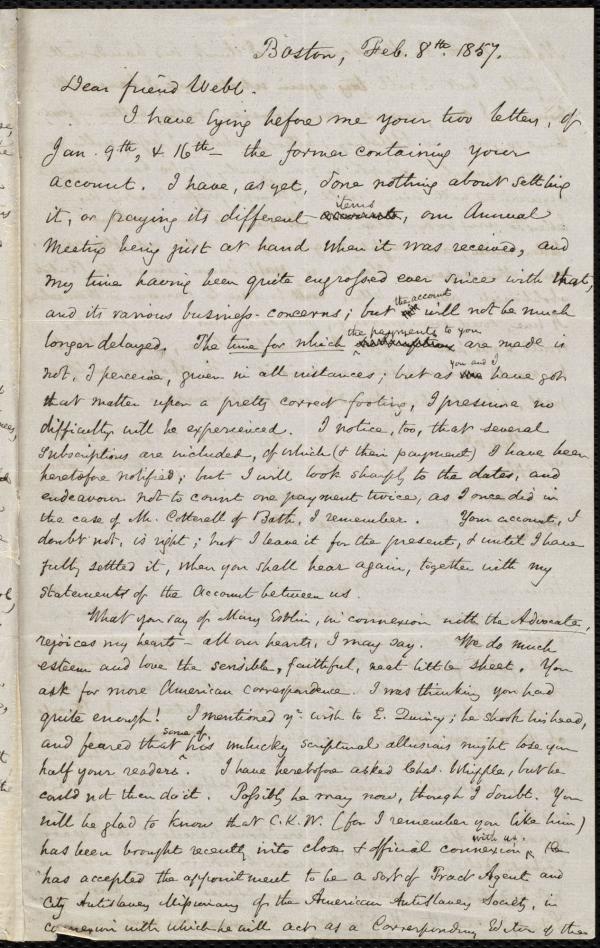 Boston, Feb. 8th. 1857.
Dear friend Webb.
I have lying before me your two letters, of
Jan. 9th, & 16th — the former containing your
account. I have, as yet, done nothing about settling
it, or paying its different items, our Annual
Meeting being just at hand when it was received, and
my time having been quite engrossed ever since with that,
and its various business-concerns; but the account will not be much
longer delayed. The time for which the payments to you are made is
not, I perceive, given in all instances; but as you and I have got
that matter upon a pretty correct footing, I presume no
difficulty will be experienced. I notice, too, that several
subscriptions are included, of which (& their payment) I have been
heretofore notified; but I will look sharply to the dates, and
endeavour not to count one payment twice, as I once did in
the case of Mr. Cotterell of Bath, I remember. Your account, I
doubt not, is right; but I leave it for the present, & until I have
fully settled it, when you shall hear again, together with my
statements of the Account between us.
What you say of Mary Estlin, in connexion with the Advocate,
rejoices my heart — all our hearts, I may say. We do much
esteem and love the sensible, faithful, neat little sheet. You
ask for more American correspondence. I was thinking you had
quite enough! I mentioned yr. wish to E. Quincy; he shook his head,
and feared that some of his unlucky scriptural allusions might lose you
half your readers. I have heretofore asked Chas. Whipple, but he
could not then do it. Possibly he may now, though I doubt. You
will be glad to know that C.K.W. (for I remember you like him)
has been brought recently into close & official connexion with us. He
has accepted the appointment to be a sort of Tract Agent and
City Antislavery Missionary of the American Antislavery Society, in
connexion with which he will act as a Corresponding Editor of the